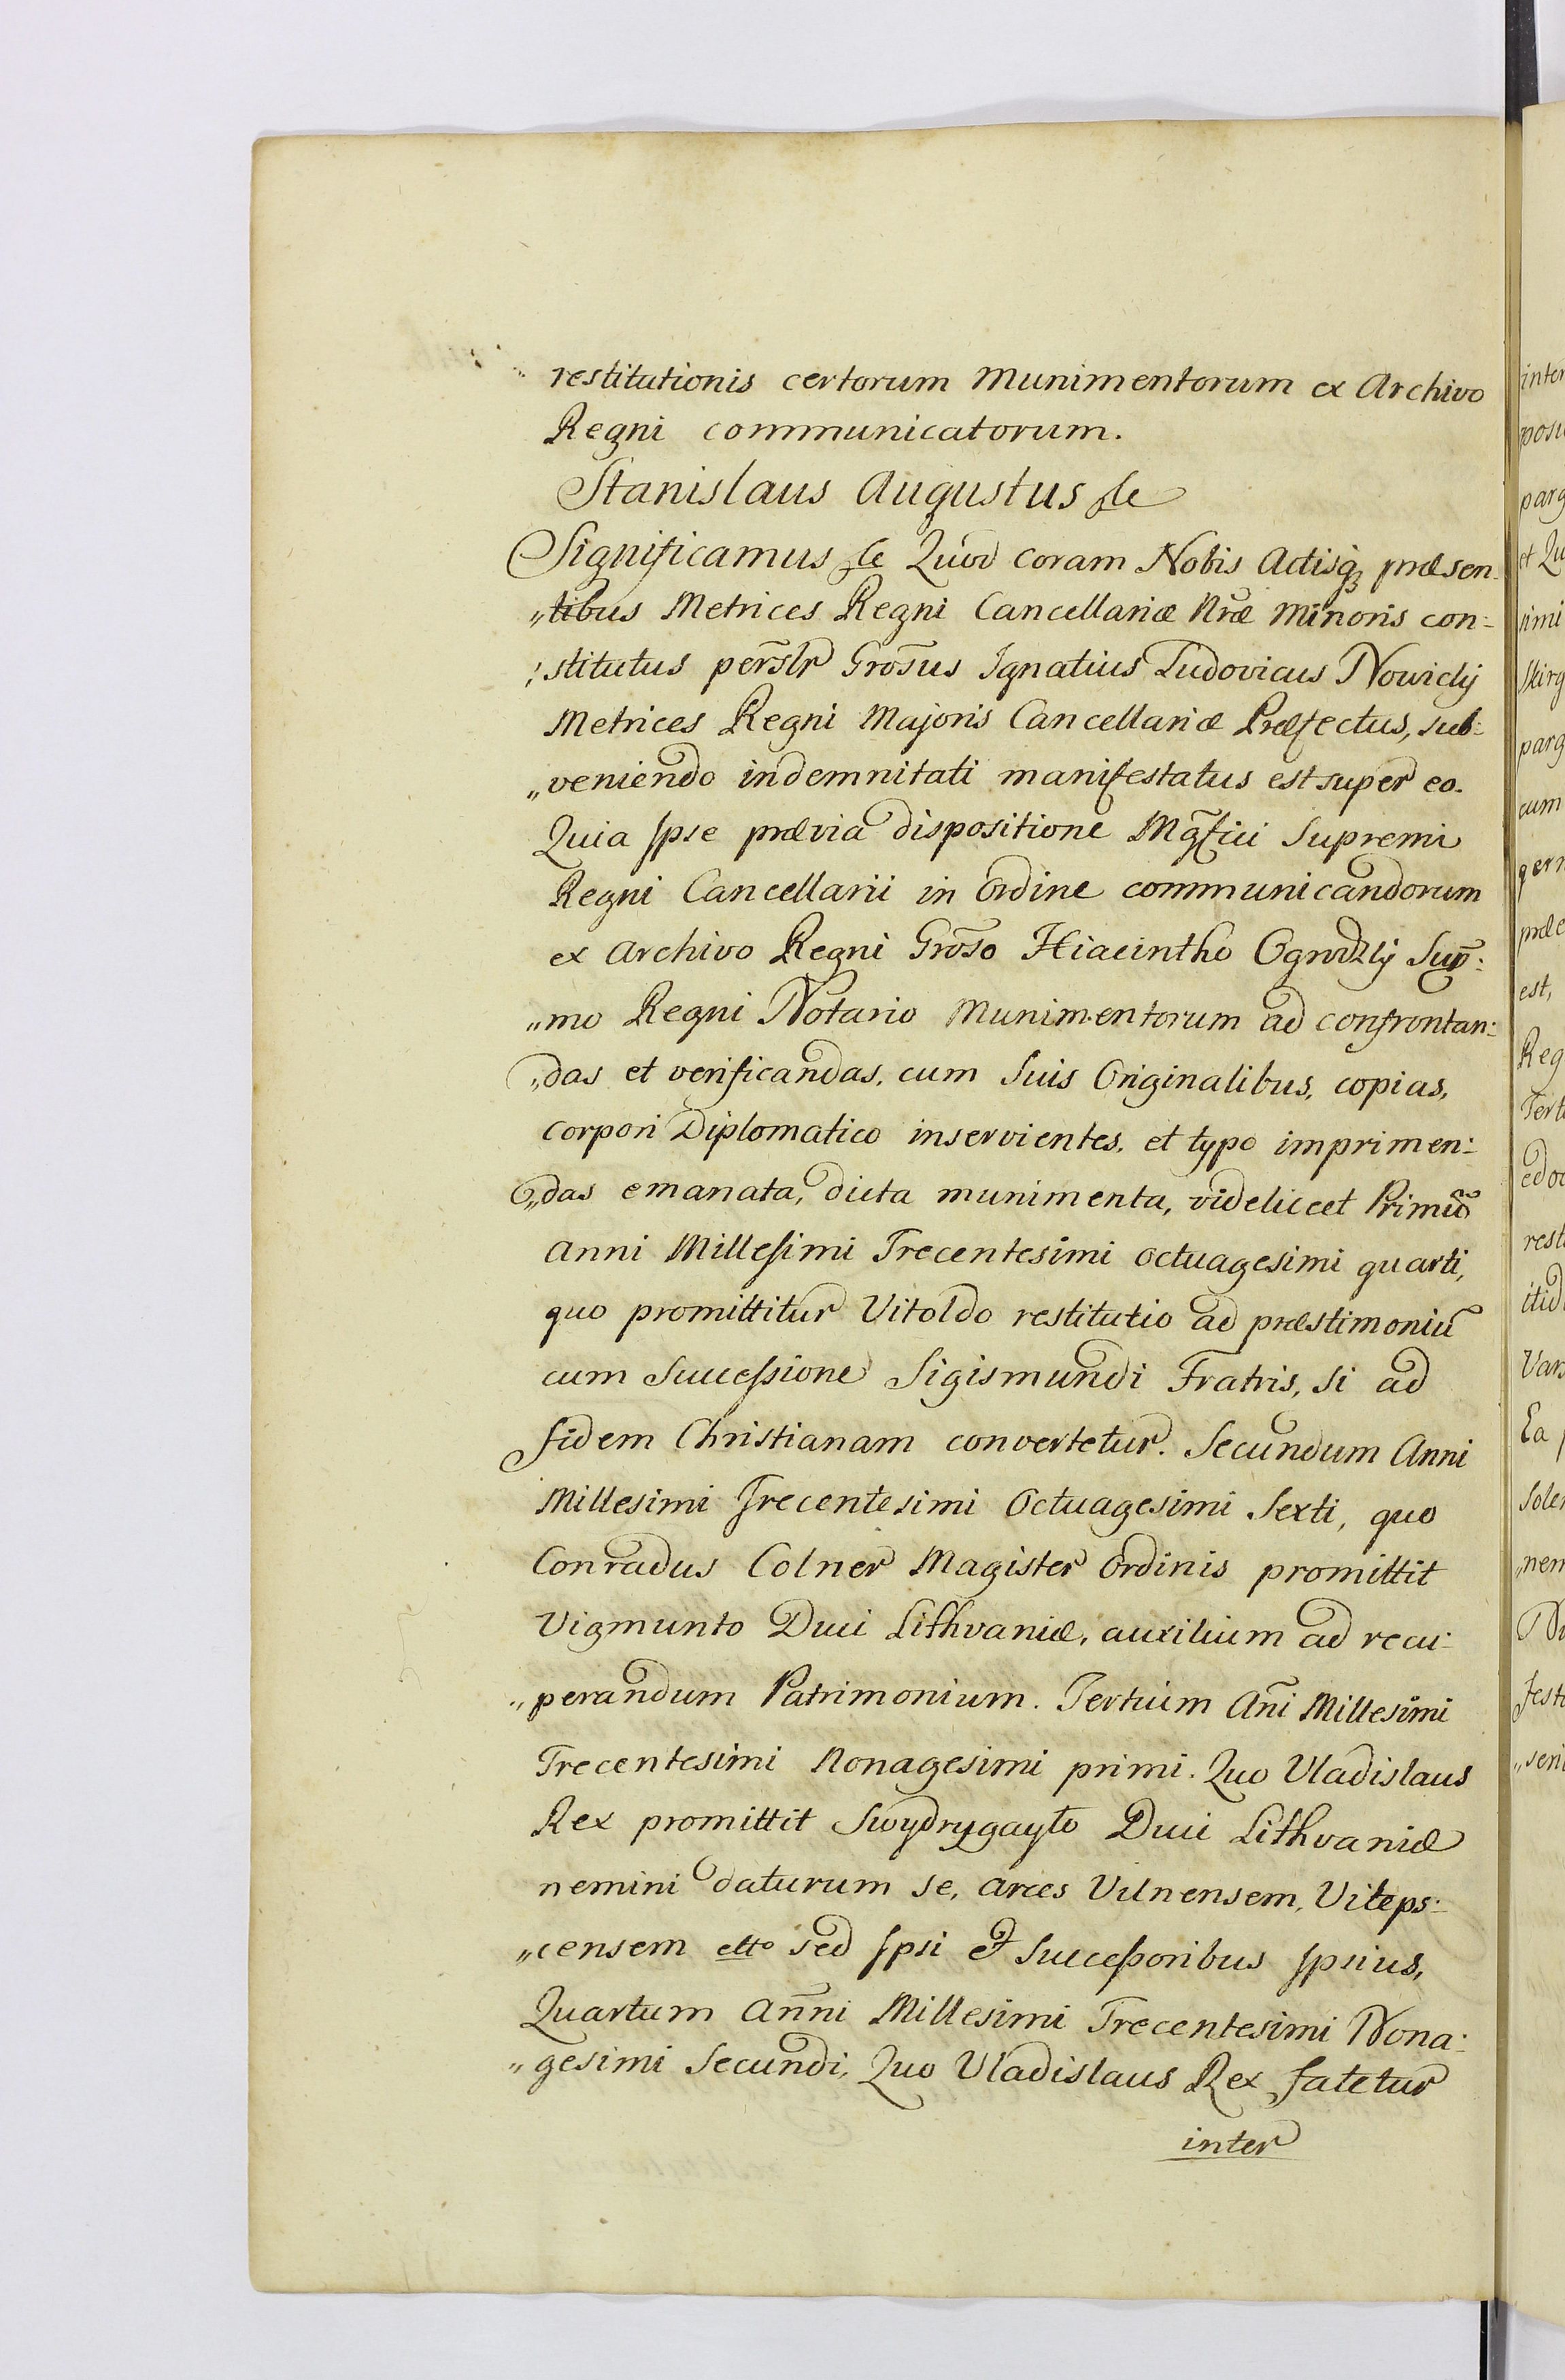 restitutionis certorum Munimentorum ex Archivo
Regni communicatorum.
Stanislaus Augustus &c
Significamus &c Quod coram Nobis Actisq præsen-
„tibus Metrices Regni Cancellariæ Nræ Minoris con-
„stitutus perslr Grosus Ignatius Ludovicus Nowicky
Metrices Regni Majoris Cancellariæ Præfectus, sub-
„veniendo indemnitati manifestatus est super eo.
Quia Ipse prævia dispositione Mgfici Supremi
Regni Cancellarii in Ordine communicandorum
ex Archivo Regni Groso Hiacintho Ogrodzky Sup-
„mo Regni Notario Munimentorum ad confrontan-
„das et verificandas, cum Suis Originalibus, copias,
corpori Diplomatico inservientes, et typo imprimen-
„das emanata, dicta munimenta, videliccet Primū
Anni Millesimi Trecentesimi octuagesimi quarti,
quo promittitur Vitoldo restitutio ad præstimoniū
cum Successione Sigismundi Fratris, si ad
fidem Christianam convertetur. Secundum Anni
Millesimi Trecentesimi Octuagesimi Sexti, quo
Conradus Colner Magister Ordinis promittit
Vigmunto Duci Lithvaniæ, auxilium ad recu-
„perandum Patrimonium. Tertium Añi Millesimi
Trecentesimi Nonagesimi primi. Quo Uladislaus
Rex promittit Swydrygayło Duci Lithvaniæ
nemini daturum se, arces Vilnensem, Viteps-
„censem etto sed Ipsi et Successoribus Ipsius,
Quartum Anni Millesimi Trecentesimi Nona-
„gesimi Secundi, Quo Uladislaus Rex fatetur
inter